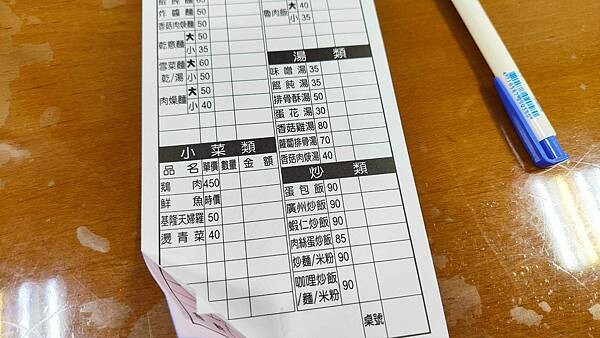 炸醬麵 50
香菇肉焿麵 50
乾意麵 大 50
小 35
雪菜麵 大 60
乾/湯 小 50
肉燥麵 大 50
小 40
小菜類
品名 單價 數量 金額
鵝肉 450
鮮魚 時價
基隆天婦羅 50
燙青菜 40
魯肉飯 大 40
小 35
湯類
味噌湯 35
餛飩湯 35
排骨酥湯 50
蛋花湯 30
香菇雞湯 80
蘿蔔排骨湯 70
香菇肉焿湯 40
炒類
蛋包飯 90
廣州炒飯 90
蝦仁炒飯 90
肉絲蛋炒飯 85
炒麵/米粉 90
咖哩炒飯
/麵/米粉 90
桌號